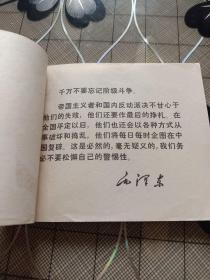 千万不要忘记阶级斗争。
帝国主义者和国内反动派决不甘心于
他们的失败，他们还要作最后的挣扎。在
全国平定以后，他们也还会以各种方式从
事破坏和捣乱，他们将每日每时企图在中
国复辟。这是必然的，毫无疑义的，我们务
必不要松懈自己的警惕性。
毛泽东